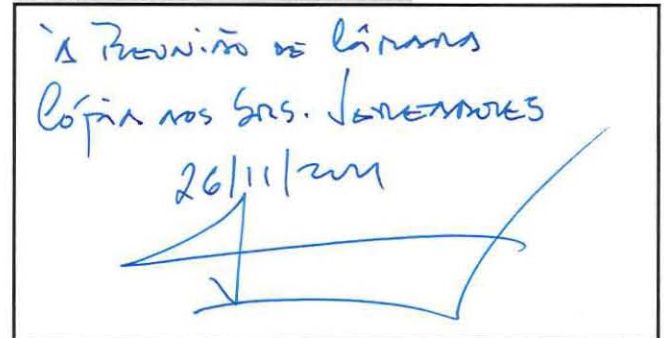 À Reunião de Câmara
Cópia aos Srs. Vereadores
26/11/2021